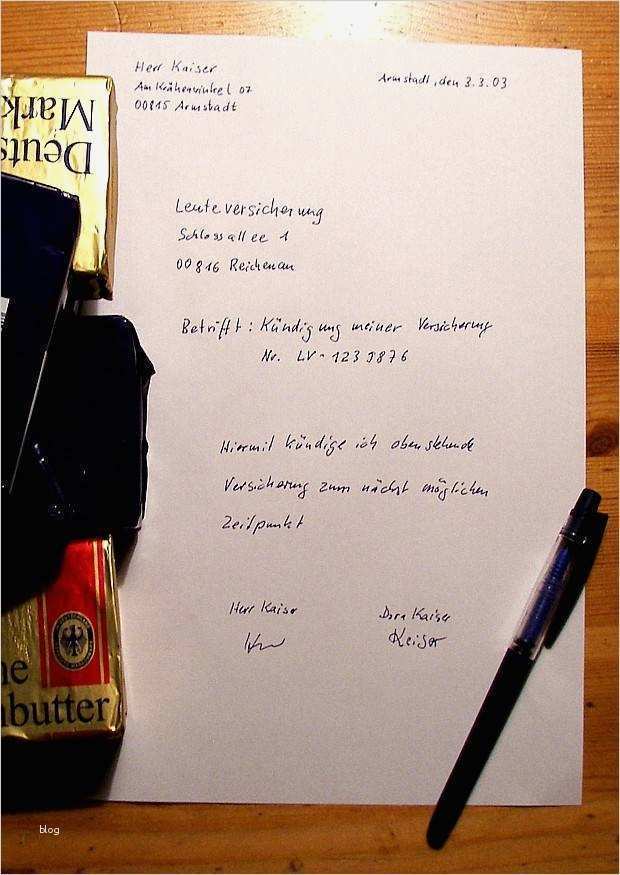 Herr Kaiser
Am Krähenwinkel 07
00815 Armstadt
Armstadt, den 3.3.03
Leuteversicherung
Schlossallee 1
00816 Reichenau
Betrifft: Kündigung meiner Versicherung
Nr. LV-1239876
Hiermit kündige ich obenstehende
Versicherung zum nächst möglichen
Zeitpunkt
Herr Kaiser
Dora Kaiser
Keiser
Deuts
Mark
ne
nbutter
blog